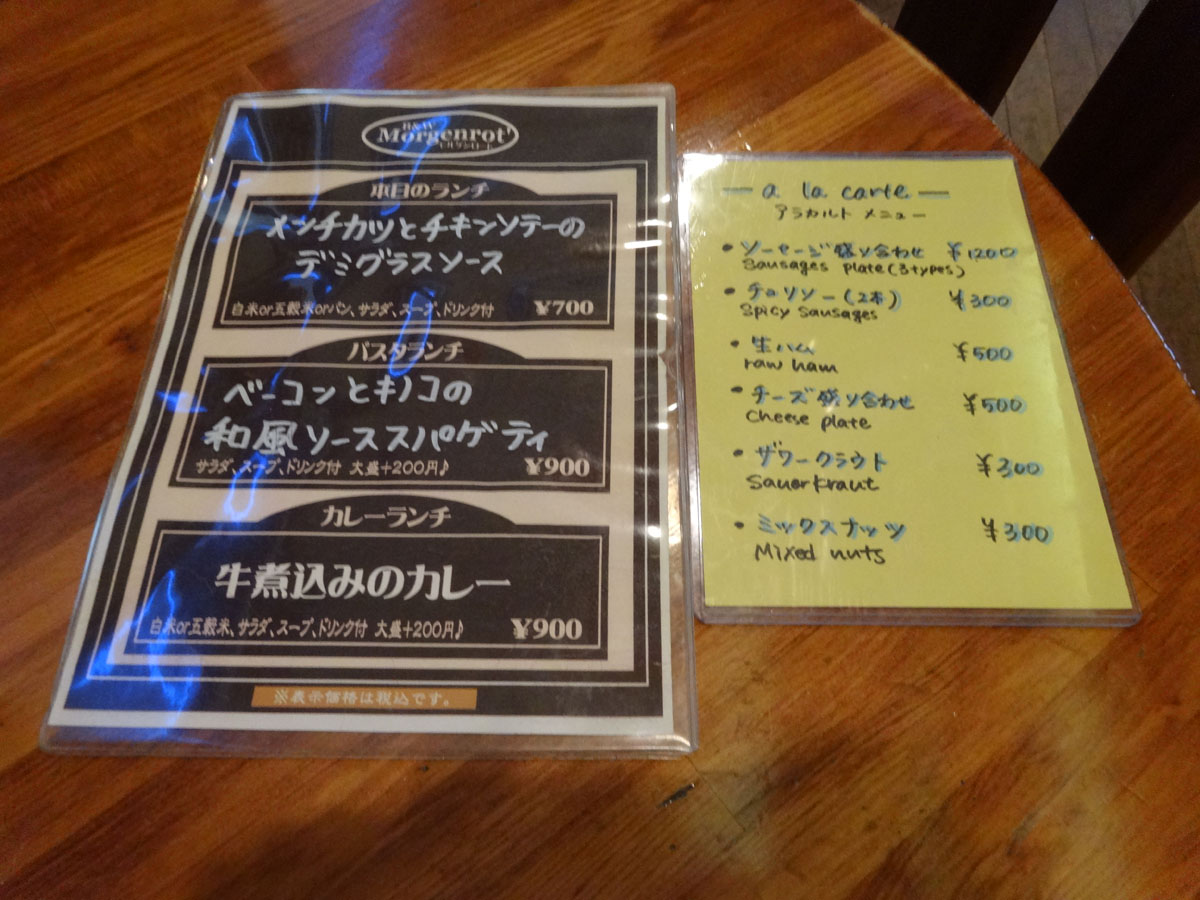 B&W
Morgenrot'
モルゲンロート
本日のランチ
メンチカツとチキンソテーの
デミグラスソース
白米or五穀米orパン、サラダ、スープ、ドリンク付 ¥700
パスタランチ
ベーコンとキノコの
和風ソーススパゲティ
サラダ、スープ、ドリンク付 大盛+200円♪ ¥900
カレーランチ
牛煮込みのカレー
白米or五穀米、サラダ、スープ、ドリンク付 大盛+200円♪ ¥900
※表示価格は税込です。
— a la carte —
アラカルト メニュー
• ソーセージ盛り合わせ ¥1200
Sausages plate (3types)
• チョリソー(2本) ¥300
Spicy Sausages
• 生ハム ¥500
raw ham
• チーズ盛り合わせ ¥500
Cheese plate
• ザワークラウト ¥300
Sauerkraut
• ミックスナッツ ¥300
Mixed nuts